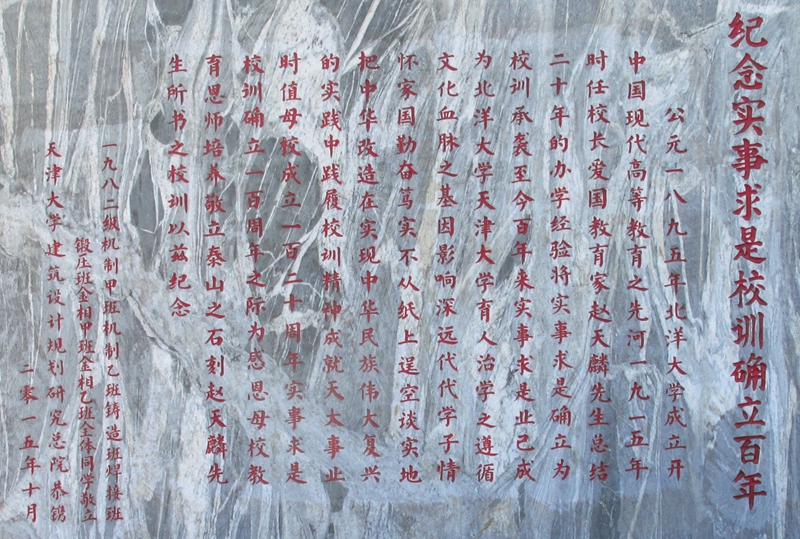 纪念实事求是校训确立百年
公元一八九五年北洋大学成立开
中国现代高等教育之先河一九一五年
时任校长爱国教育家赵天麟先生总结
二十年的办学经验将实事求是确立为
校训承袭至今百年来实事求是业已成
为北洋大学天津大学育人治学之遵循
文化血脉之基因影响深远代代学子情
怀家国勤奋笃实不从纸上逞空谈实地
把中华改造在实现中华民族伟大复兴
的实践中践履校训精神成就天大事业
时值母校成立一百二十周年实事求是
校训确立一百周年之际为感恩母校教
育恩师培养敬立泰山之石刻赵天麟先
生所书之校训以兹纪念
一九八二级机制甲班机制乙班铸造班焊接班
锻压班金相甲班金相乙班全体同学敬立
天津大学建筑设计规划研究总院恭镌
二零一五年十月